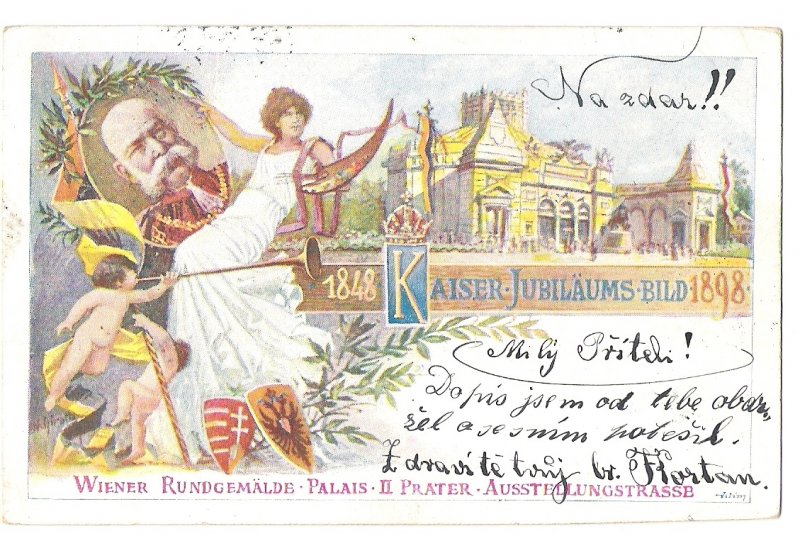 Na zdar!!
1848 KAISER·JUBILÄUMS·BILD 1898·
Milý Příteli!
Dopis jsem od tebe obdr-
žel a se s ním potěšil.
Zdraví tě tvůj br.
WIENER RUNDGEMÄLDE·PALAIS·II PRATER·AUSSTELLUNGSTRASSE